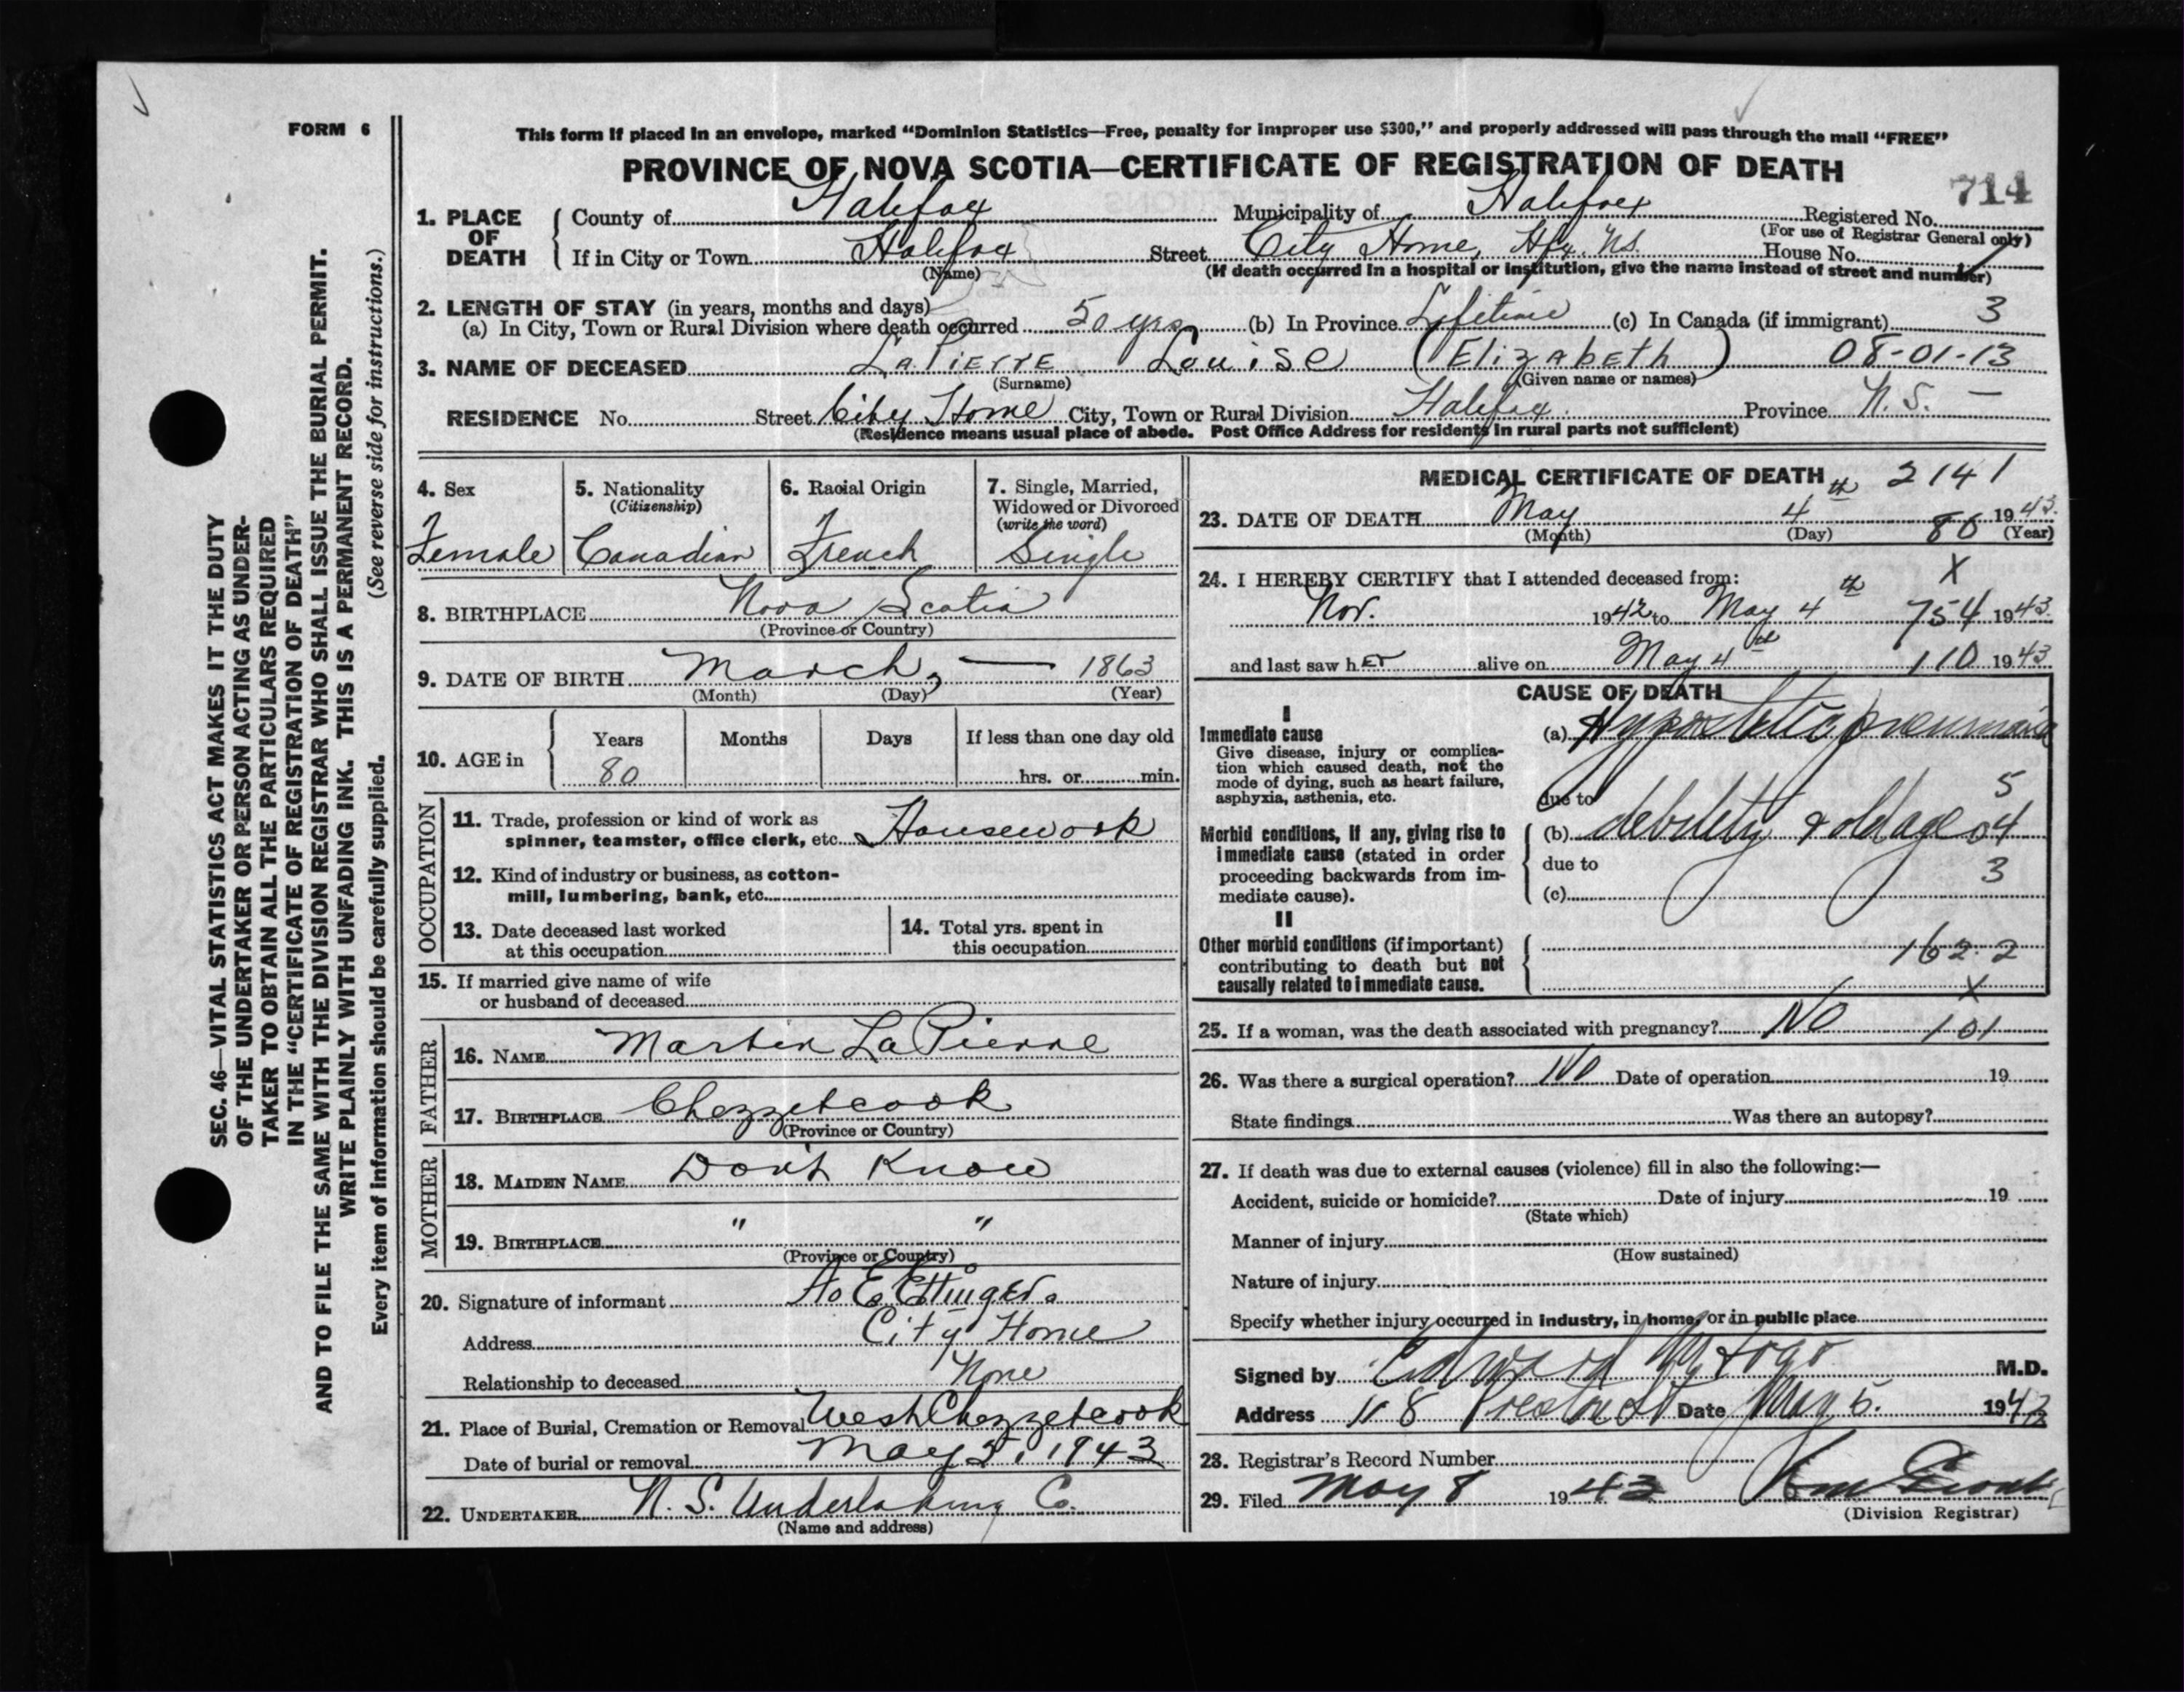 FORM 6
SEC. 46—VITAL STATISTICS ACT MAKES IT THE DUTY
OF THE UNDERTAKER OR PERSON ACTING AS UNDER-
TAKER TO OBTAIN ALL THE PARTICULARS REQUIRED
IN THE "CERTIFICATE OF REGISTRATION OF DEATH"
AND TO FILE THE SAME WITH THE DIVISION REGISTRAR WHO SHALL ISSUE THE BURIAL PERMIT.
WRITE PLAINLY WITH UNFADING INK. THIS IS A PERMANENT RECORD.
Every item of information should be carefully supplied. (See reverse side for instructions.)
This form if placed in an envelope, marked "Dominion Statistics—Free, penalty for improper use $300," and properly addressed will pass through the mail "FREE"
PROVINCE OF NOVA SCOTIA—CERTIFICATE OF REGISTRATION OF DEATH
714
1. PLACE OF DEATH County of Halifax Municipality of Halifax Registered No.
(For use of Registrar General only)
If in City or Town Halifax Street City Home, Hfx. N.S. House No.
(Name) (If death occurred in a hospital or institution, give the name instead of street and number)
2. LENGTH OF STAY (in years, months and days)
(a) In City, Town or Rural Division where death occurred 50 yrs (b) In Province Lifetime (c) In Canada (if immigrant) 3
3. NAME OF DECEASED LaPierre Louise (Elizabeth) 08-01-13
(Surname) (Given name or names)
RESIDENCE No. Street City Home City, Town or Rural Division Halifax. Province N. S. —
(Residence means usual place of abode. Post Office Address for residents in rural parts not sufficient)
4. Sex Female
5. Nationality (Citizenship) Canadian
6. Racial Origin French
7. Single, Married, Widowed or Divorced (write the word) Single
8. BIRTHPLACE Nova Scotia
(Province or Country)
9. DATE OF BIRTH March, — 1863
(Month) (Day) (Year)
10. AGE in Years Months Days If less than one day old
80 hrs. or min.
OCCUPATION
11. Trade, profession or kind of work as
spinner, teamster, office clerk, etc. Housework
12. Kind of industry or business, as cotton-
mill, lumbering, bank, etc.
13. Date deceased last worked
at this occupation
14. Total yrs. spent in
this occupation
15. If married give name of wife
or husband of deceased
FATHER
16. NAME Martin LaPierre
17. BIRTHPLACE Chezzetcook
(Province or Country)
MOTHER
18. MAIDEN NAME Don't Know
19. BIRTHPLACE " "
(Province or Country)
20. Signature of informant E. Ettinger.
Address City Home
Relationship to deceased None
21. Place of Burial, Cremation or Removal West Chezzetcook
Date of burial or removal May 5, 1943
22. UNDERTAKER N. S. Undertaking Co.
(Name and address)
MEDICAL CERTIFICATE OF DEATH 2141
23. DATE OF DEATH May 4th 1943.
(Month) (Day) 80 (Year)
24. I HEREBY CERTIFY that I attended deceased from: X
Nov. 1942 to May 4th 754 1943.
and last saw her alive on May 4th 110 1943
CAUSE OF DEATH
I
Immediate cause
Give disease, injury or complica-
tion which caused death, not the
mode of dying, such as heart failure,
asphyxia, asthenia, etc.
(a) Hypostatic pneumonia
due to 5
Morbid conditions, if any, giving rise to
immediate cause (stated in order
proceeding backwards from im-
mediate cause).
(b) debility & old age 04
due to 3
(c)
II
Other morbid conditions (if important)
contributing to death but not
causally related to immediate cause.
162.2
X
25. If a woman, was the death associated with pregnancy? No 101
26. Was there a surgical operation? No Date of operation 19
State findings Was there an autopsy?
27. If death was due to external causes (violence) fill in also the following:—
Accident, suicide or homicide? Date of injury 19
(State which)
Manner of injury
(How sustained)
Nature of injury
Specify whether injury occurred in industry, in home, or in public place
Signed by Edward M.D.
Address 118 Preston St Date May 5. 1943
28. Registrar's Record Number
29. Filed May 8 1943
(Division Registrar)